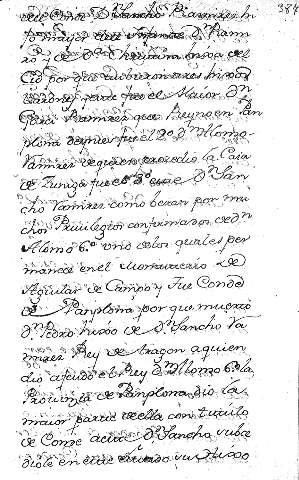 384
de Cond. Dⁿ Sancho Ramirez hi
jo mayor del Infante Dⁿ Rami
ro y de Dª Christina hixa del
Cid por que tubieron tres hixos
varones
fue el Maior Dⁿ
Garci Ramirez que Reyno en Pan
plona
fue el 2º Dⁿ Alonso
Ramirez de quien procedio la Casa
de Zuniga fue el 3º Dⁿ San
cho Ramirez como beran por mu
chos Privilegios confirmados de Dⁿ
Alonso 6º uno de los quales per
manece en el Monasterio de
Aguilar de Campo y fue Conde
de Panplona, por que muerto
Dⁿ Pedro hixo de Dⁿ Sancho Ra
mirez Rey de Aragon a quien
dio a feudo el Rey Dⁿ Alonso 6º la
Provincia de Panplona, dio la
maior parte della con titulo
de Conde a este Dⁿ Sancho subce
diole en este estado su hixo